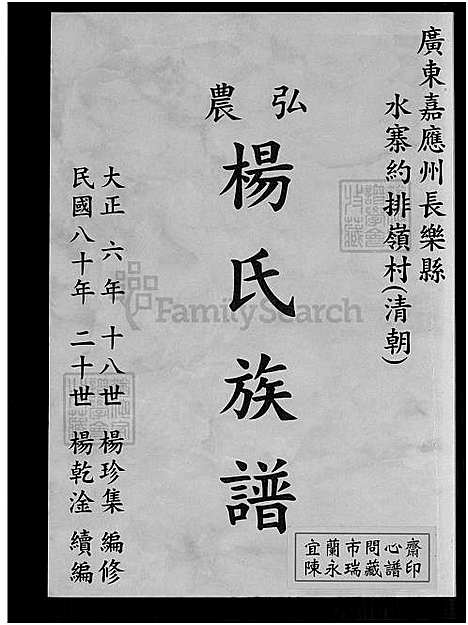 廣東嘉應州長樂縣
水寨約排嶺村(清朝)
弘農
楊氏族譜
大正六年 十八世 楊珍集 編修
民國八十年 二十世 楊乾淦 續編
宜蘭市問心齋
陳永瑞藏譜印
FamilySearch